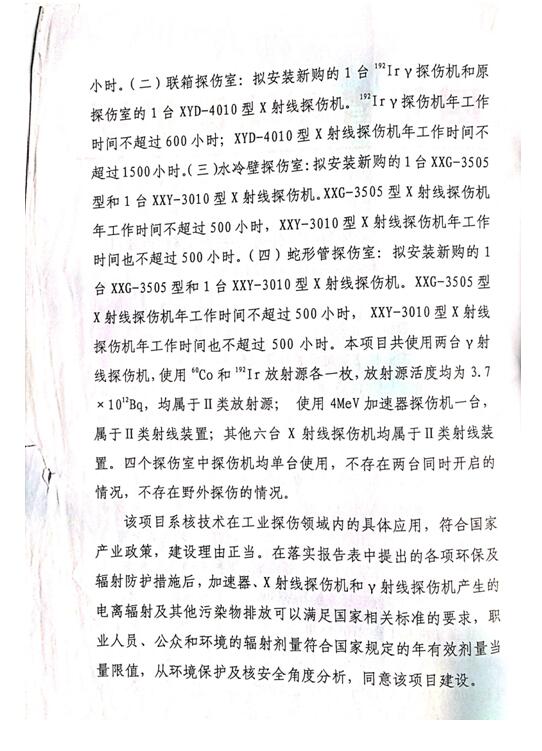 小时。（二）联箱探伤室：拟安装新购的 1 台 ¹⁹²Ir γ 探伤机和原
探伤室的 1 台 XYD-4010 型 X 射线探伤机。¹⁹²Ir γ 探伤机年工作
时间不超过 600 小时；XYD-4010 型 X 射线探伤机年工作时间不
超过 1500 小时。（三）水冷壁探伤室：拟安装新购的 1 台 XXG-3505
型和 1 台 XXY-3010 型 X 射线探伤机。XXG-3505 型 X 射线探伤机
年工作时间不超过 500 小时，XXY-3010 型 X 射线探伤机年工作
时间也不超过 500 小时。（四）蛇形管探伤室：拟安装新购的 1
台 XXG-3505 型和 1 台 XXY-3010 型 X 射线探伤机。XXG-3505 型
X 射线探伤机年工作时间不超过 500 小时， XXY-3010 型 X 射线
探伤机年工作时间也不超过 500 小时。本项目共使用两台 γ 射
线探伤机，使用 ⁶⁰Co 和 ¹⁹²Ir 放射源各一枚，放射源活度均为 3.7
×10¹²Bq，均属于Ⅱ类放射源； 使用 4MeV 加速器探伤机一台，
属于Ⅱ类射线装置；其他六台 X 射线探伤机均属于Ⅱ类射线装
置。四个探伤室中探伤机均单台使用，不存在两台同时开启的
情况，不存在野外探伤的情况。
该项目系核技术在工业探伤领域内的具体应用，符合国家
产业政策，建设理由正当。在落实报告表中提出的各项环保及
辐射防护措施后，加速器、X 射线探伤机和 γ 射线探伤机产生的
电离辐射及其他污染物排放可以满足国家相关标准的要求，职
业人员、公众和环境的辐射剂量符合国家规定的年有效剂量当
量限值，从环境保护及核安全角度分析，同意该项目建设。